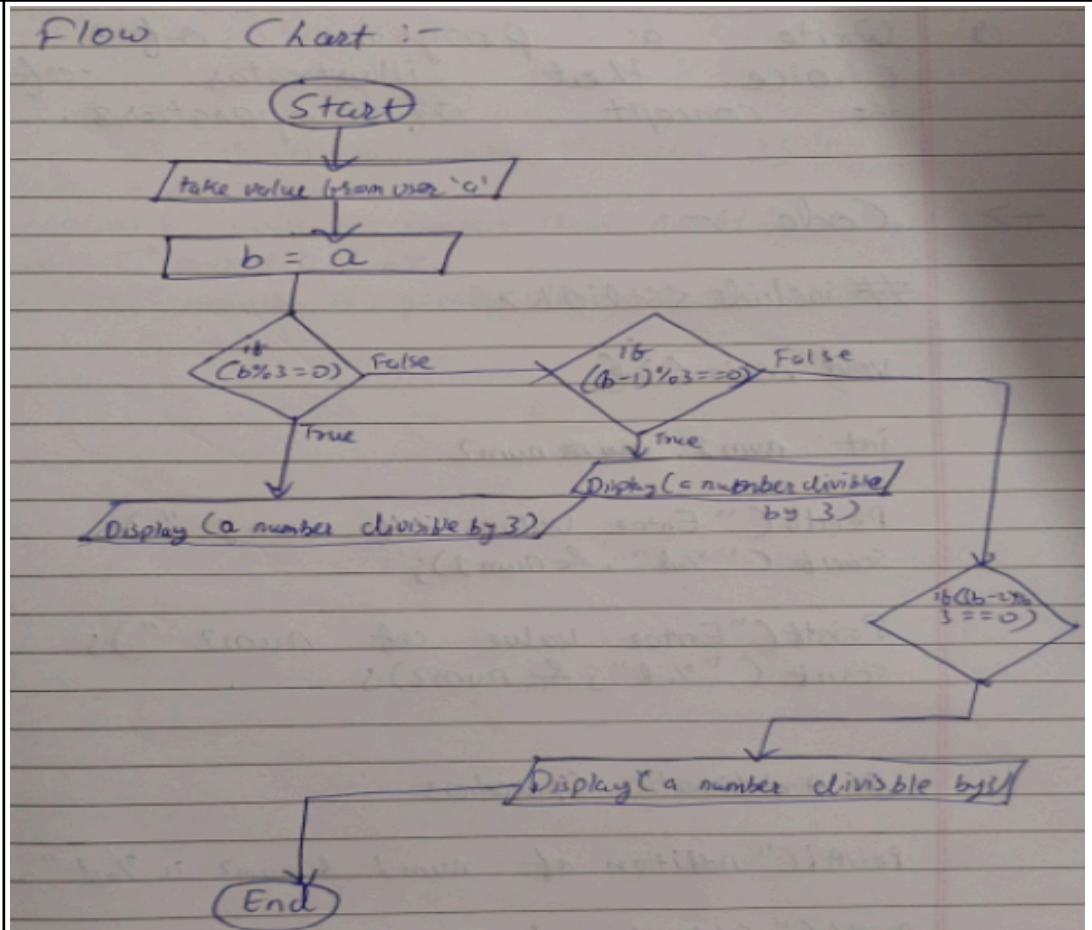 Flow Chart :-
Start
take value from user 'a'
b = a
if
(b%3=0)
False
if
((b-1)%3==0)
False
True
True
Display (a number divisible
by 3)
Display (a number divisible by 3)
if((b-2)%
3==0)
Display (a number divisble by
End